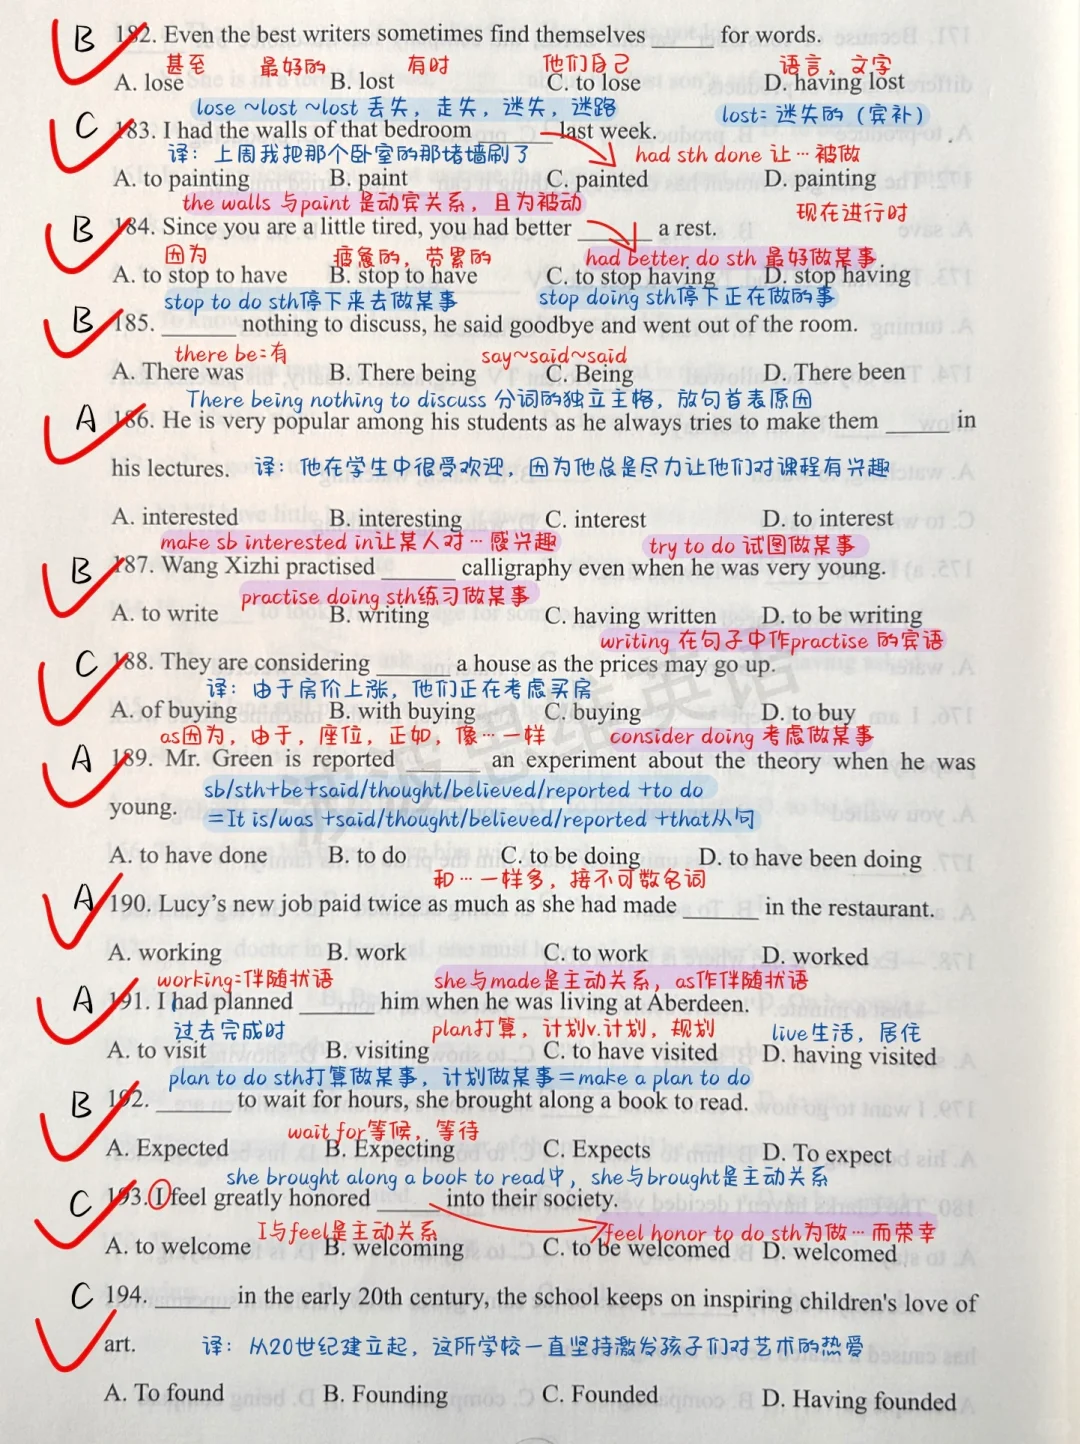 B 182. Even the best writers sometimes find themselves ______ for words.
甚至 最好的 有时 他们自己 语言，文字
A. lose B. lost C. to lose D. having lost
lose ~lost ~lost 丢失，走失，迷失，迷路 lost: 迷失的（宾补）
C 183. I had the walls of that bedroom ______ last week.
译：上周我把那个卧室的那堵墙刷了 had sth done 让…被做
A. to painting B. paint C. painted D. painting
the walls 与paint 是动宾关系，且为被动 现在进行时
B 184. Since you are a little tired, you had better ______ a rest.
因为 疲惫的，劳累的 had better do sth 最好做某事
A. to stop to have B. stop to have C. to stop having D. stop having
stop to do sth停下来去做某事 stop doing sth停下正在做的事
B 185. ______ nothing to discuss, he said goodbye and went out of the room.
there be:有 say~said~said
A. There was B. There being C. Being D. There been
There being nothing to discuss 分词的独立主格，放句首表原因
A 186. He is very popular among his students as he always tries to make them ______ in
his lectures. 译：他在学生中很受欢迎，因为他总是尽力让他们对课程有兴趣
A. interested B. interesting C. interest D. to interest
make sb interested in让某人对…感兴趣 try to do 试图做某事
B 187. Wang Xizhi practised ______ calligraphy even when he was very young.
practise doing sth练习做某事
A. to write B. writing C. having written D. to be writing
writing 在句子中作practise 的宾语
C 188. They are considering ______ a house as the prices may go up.
译：由于房价上涨，他们正在考虑买房
A. of buying B. with buying C. buying D. to buy
as因为，由于，座位，正如，像…一样 consider doing 考虑做某事
A 189. Mr. Green is reported ______ an experiment about the theory when he was
sb/sth+be+said/thought/believed/reported +to do
young. =It is/was +said/thought/believed/reported +that从句
A. to have done B. to do C. to be doing D. to have been doing
和…一样多，接不可数名词
A 190. Lucy's new job paid twice as much as she had made ______ in the restaurant.
A. working B. work C. to work D. worked
working:伴随状语 she与made是主动关系，as作伴随状语
A 191. I had planned ______ him when he was living at Aberdeen.
过去完成时 plan打算，计划v.计划，规划 live生活，居住
A. to visit B. visiting C. to have visited D. having visited
plan to do sth打算做某事，计划做某事=make a plan to do
B 192. ______ to wait for hours, she brought along a book to read.
wait for等候，等待
A. Expected B. Expecting C. Expects D. To expect
she brought along a book to read中，she与brought是主动关系
C 193. I feel greatly honored ______ into their society.
I与feel是主动关系 feel honor to do sth为做…而荣幸
A. to welcome B. welcoming C. to be welcomed D. welcomed
C 194. ______ in the early 20th century, the school keeps on inspiring children's love of
art. 译：从20世纪建立起，这所学校一直坚持激发孩子们对艺术的热爱
A. To found B. Founding C. Founded D. Having founded